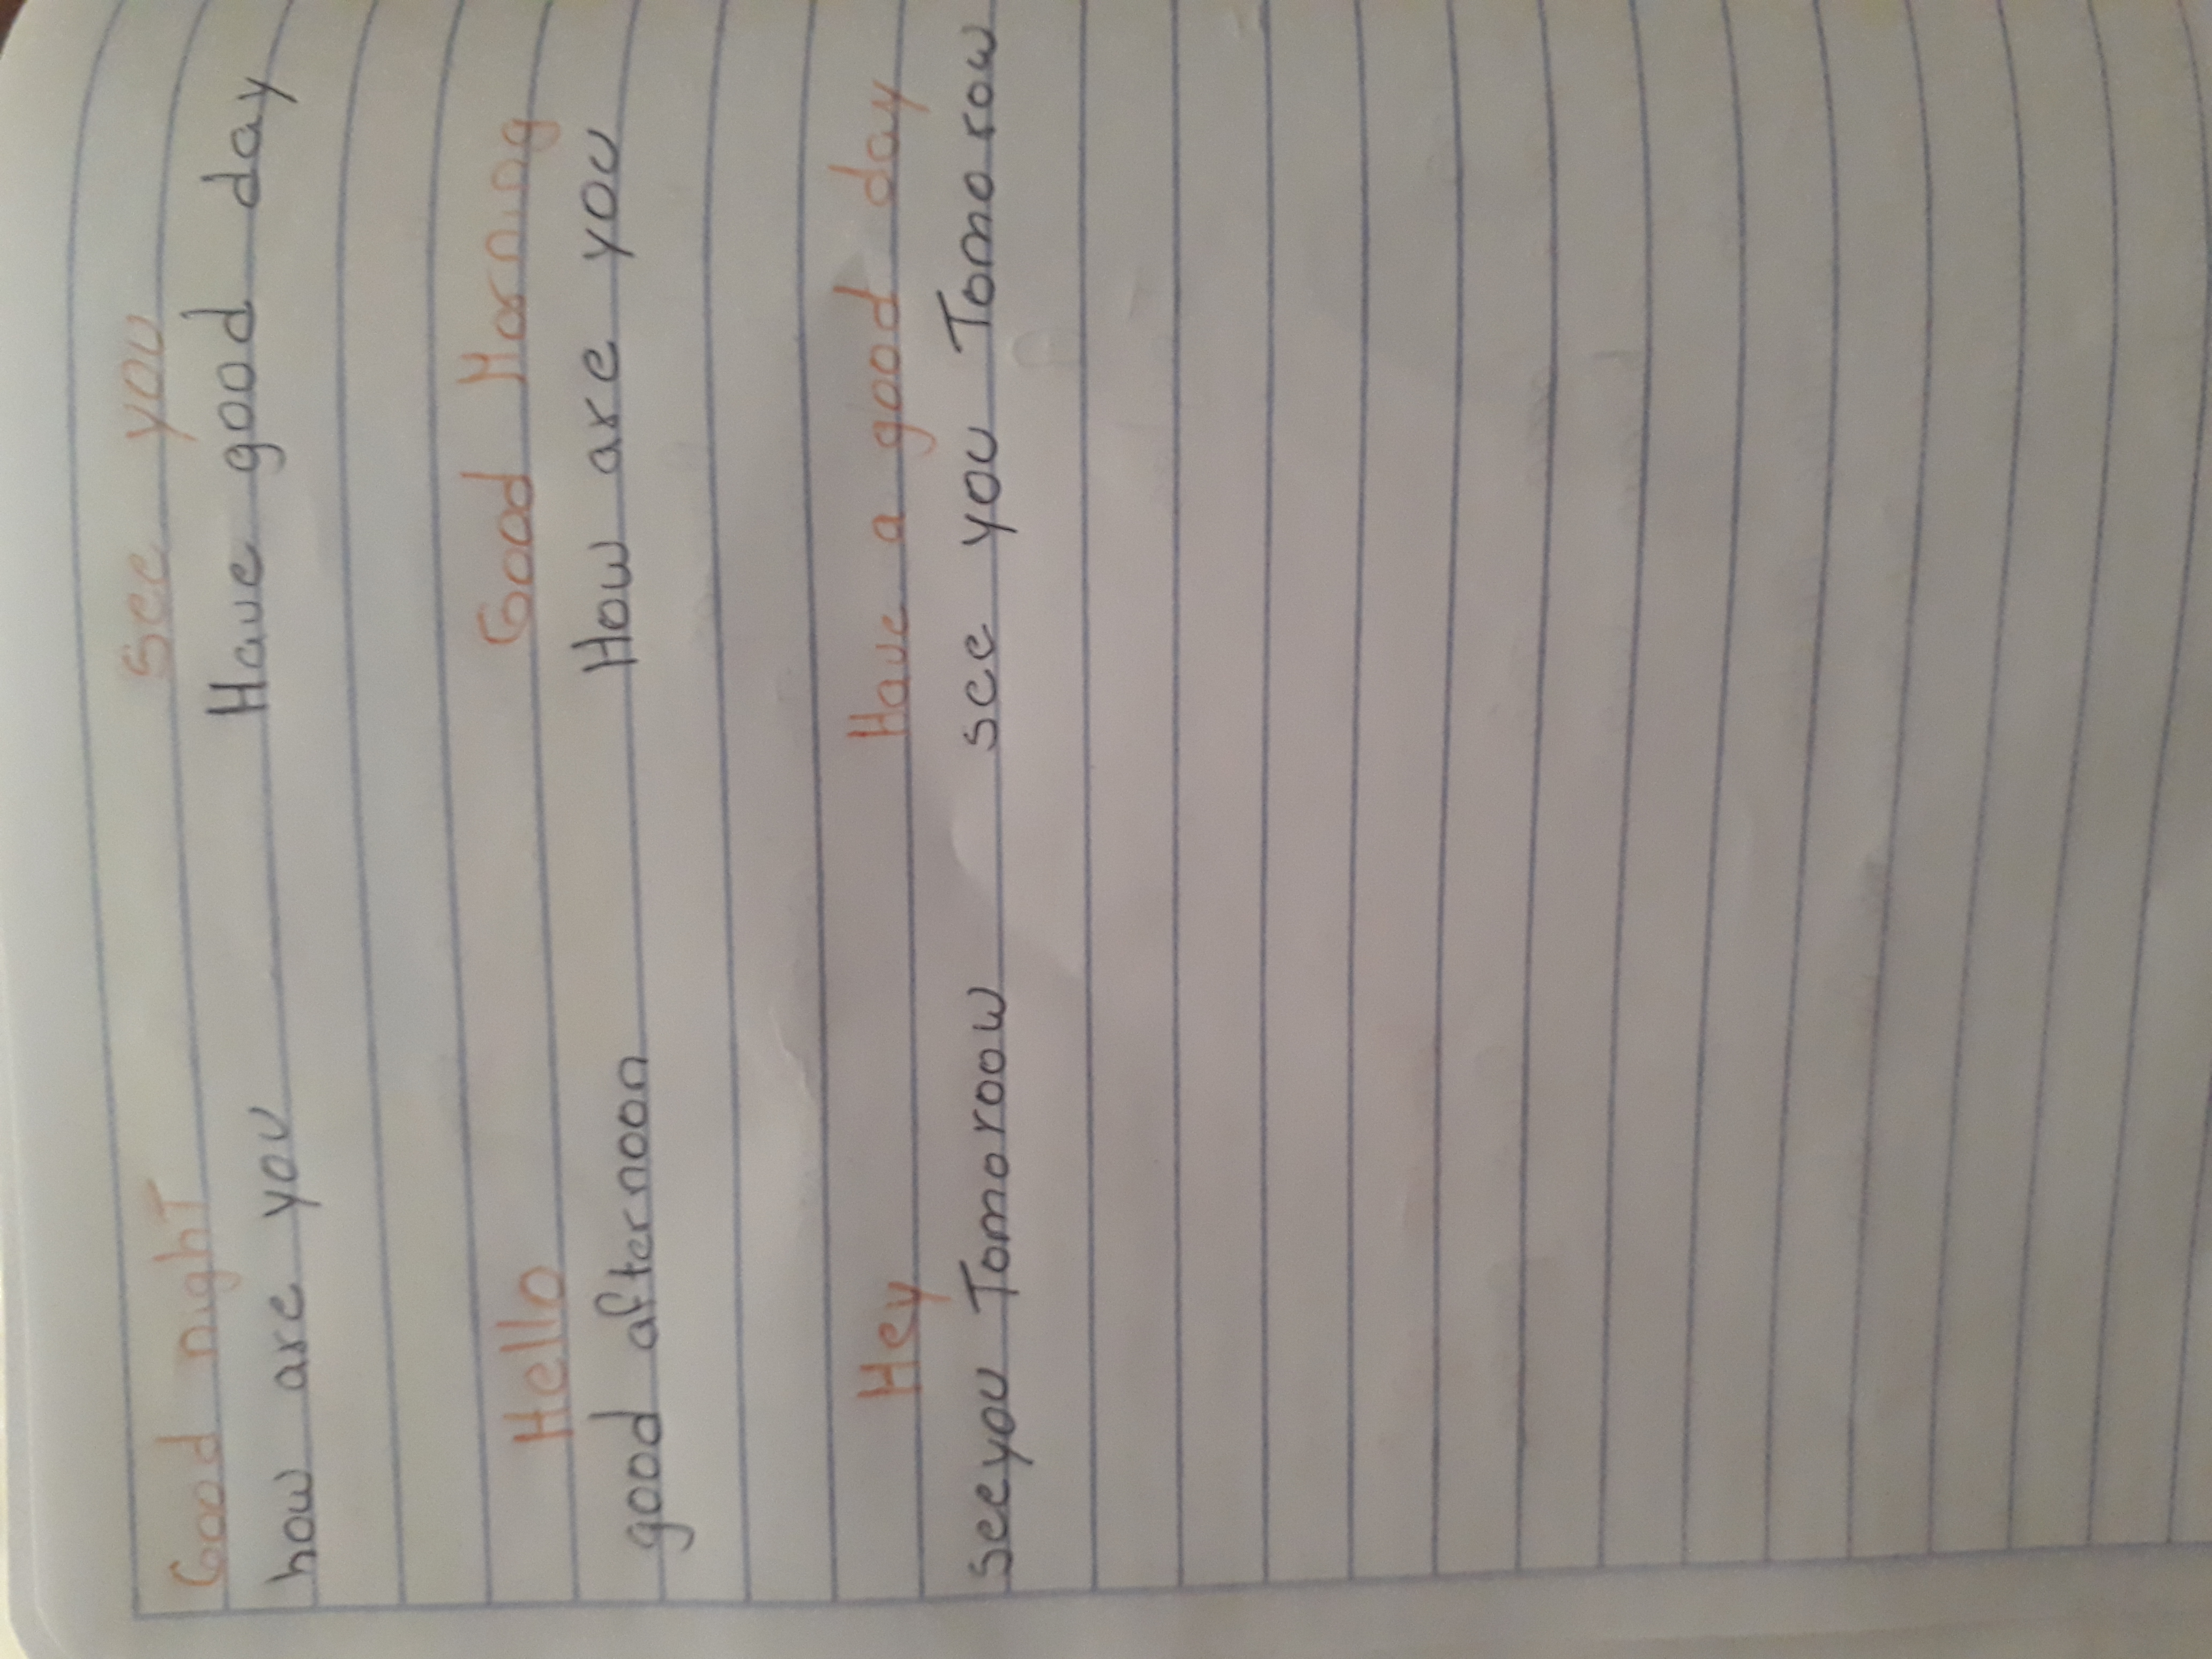 Good nighT see you
how are you Have good day
Hello Good Morning
good afternoon How are you
Hey Have a good day
see you Tomoroow see you Tomorow